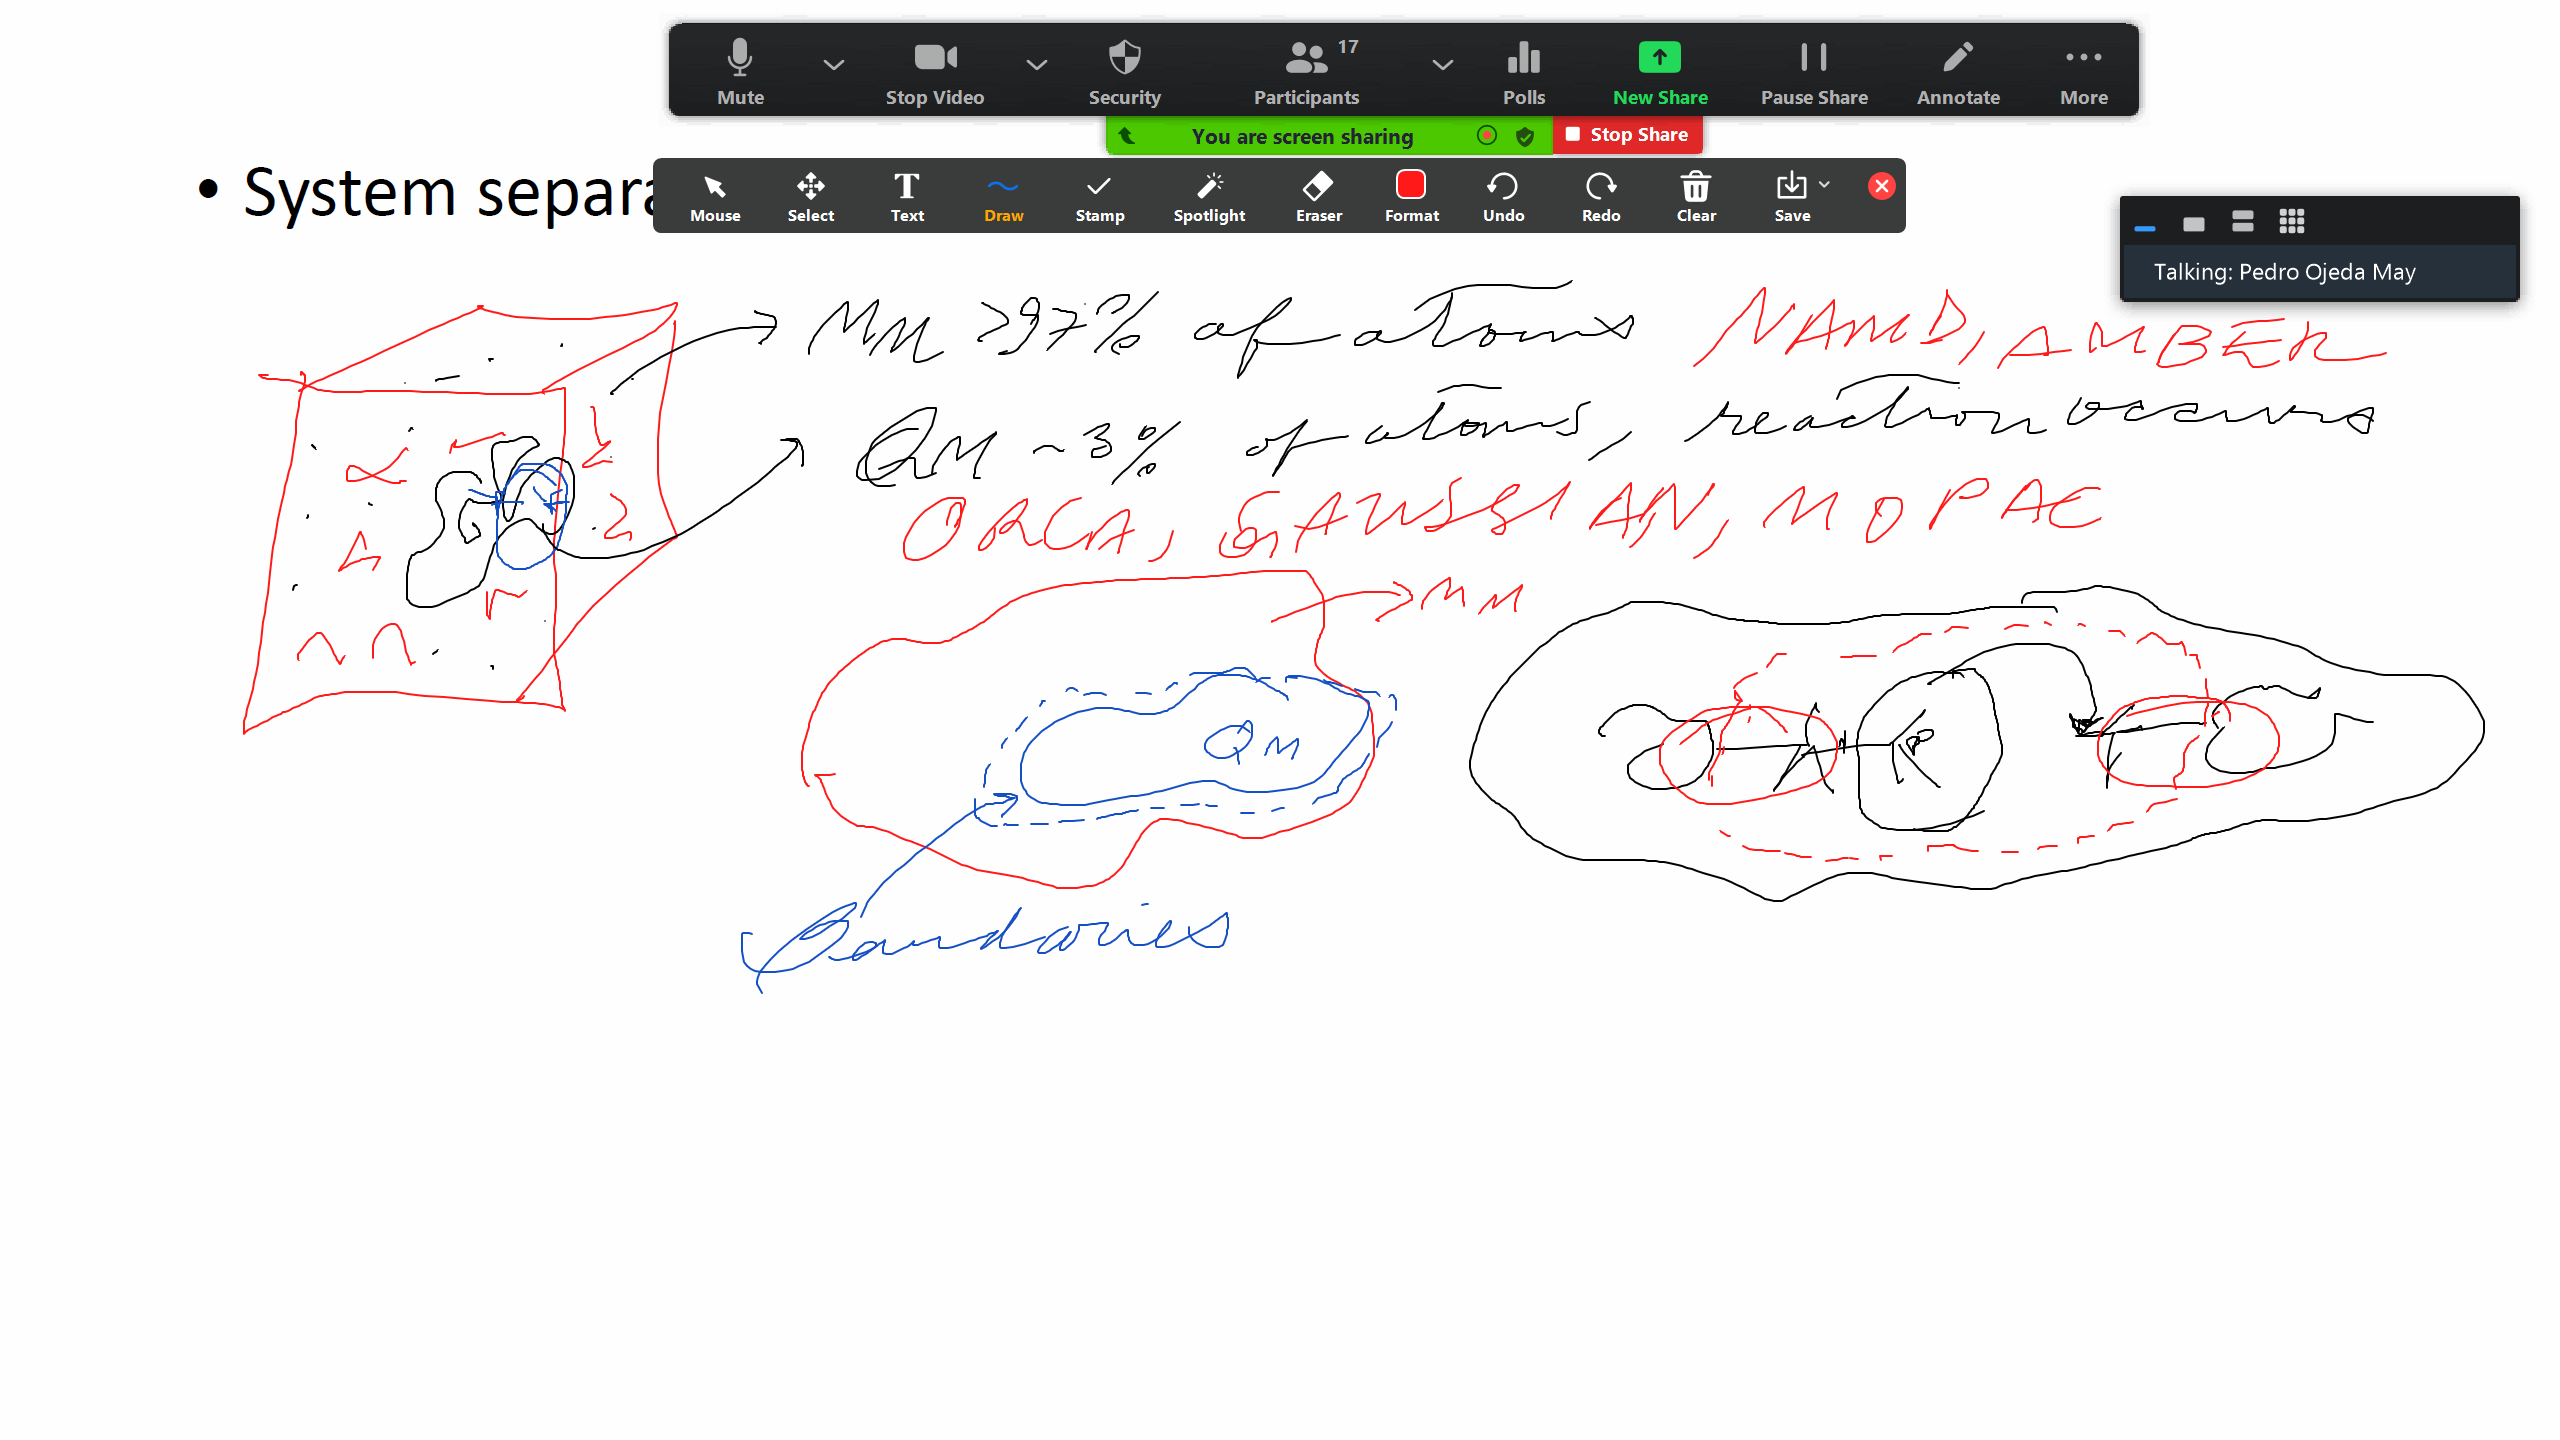 17
Mute Stop Video Security Participants Polls New Share Pause Share Annotate More
You are screen sharing Stop Share
• System separa
Mouse Select Text Draw Stamp Spotlight Eraser Format Undo Redo Clear Save
Talking: Pedro Ojeda May
MM >97% of atoms NAMD, AMBER
QM ~3% of atoms, reaction occurs
ORCA, GAUSSIAN, MOPAC
MM
QM
Boundaries